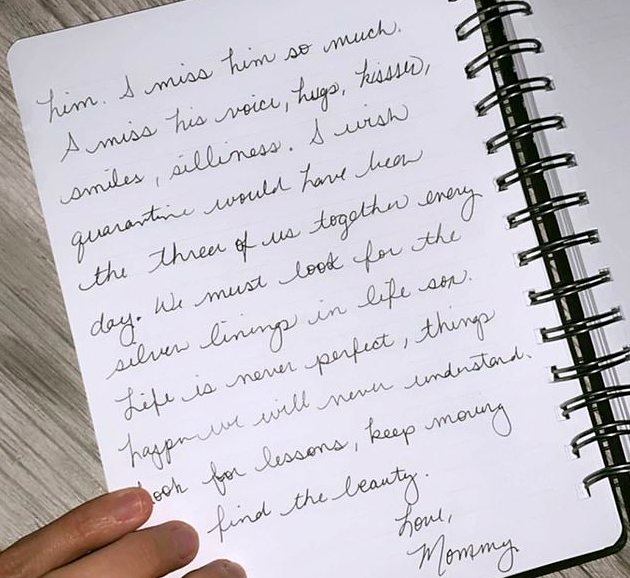 him. I miss him so much.
I miss his voice, hugs, kisses,
smiles, silliness. I wish
quarantine would have been
the three of us together every
day. We must look for the
silver linings in life son.
Life is never perfect, things
happn we will never understand.
Look for lessons, keep moving
find the beauty.
Love,
Mommy